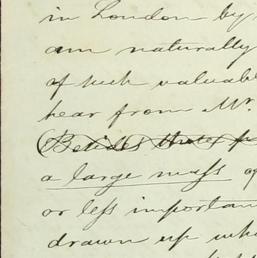 in London - by
am naturally
of such valuable
hear from Mr.
(Besides that
a large mass of
or less importan
drawn up whi